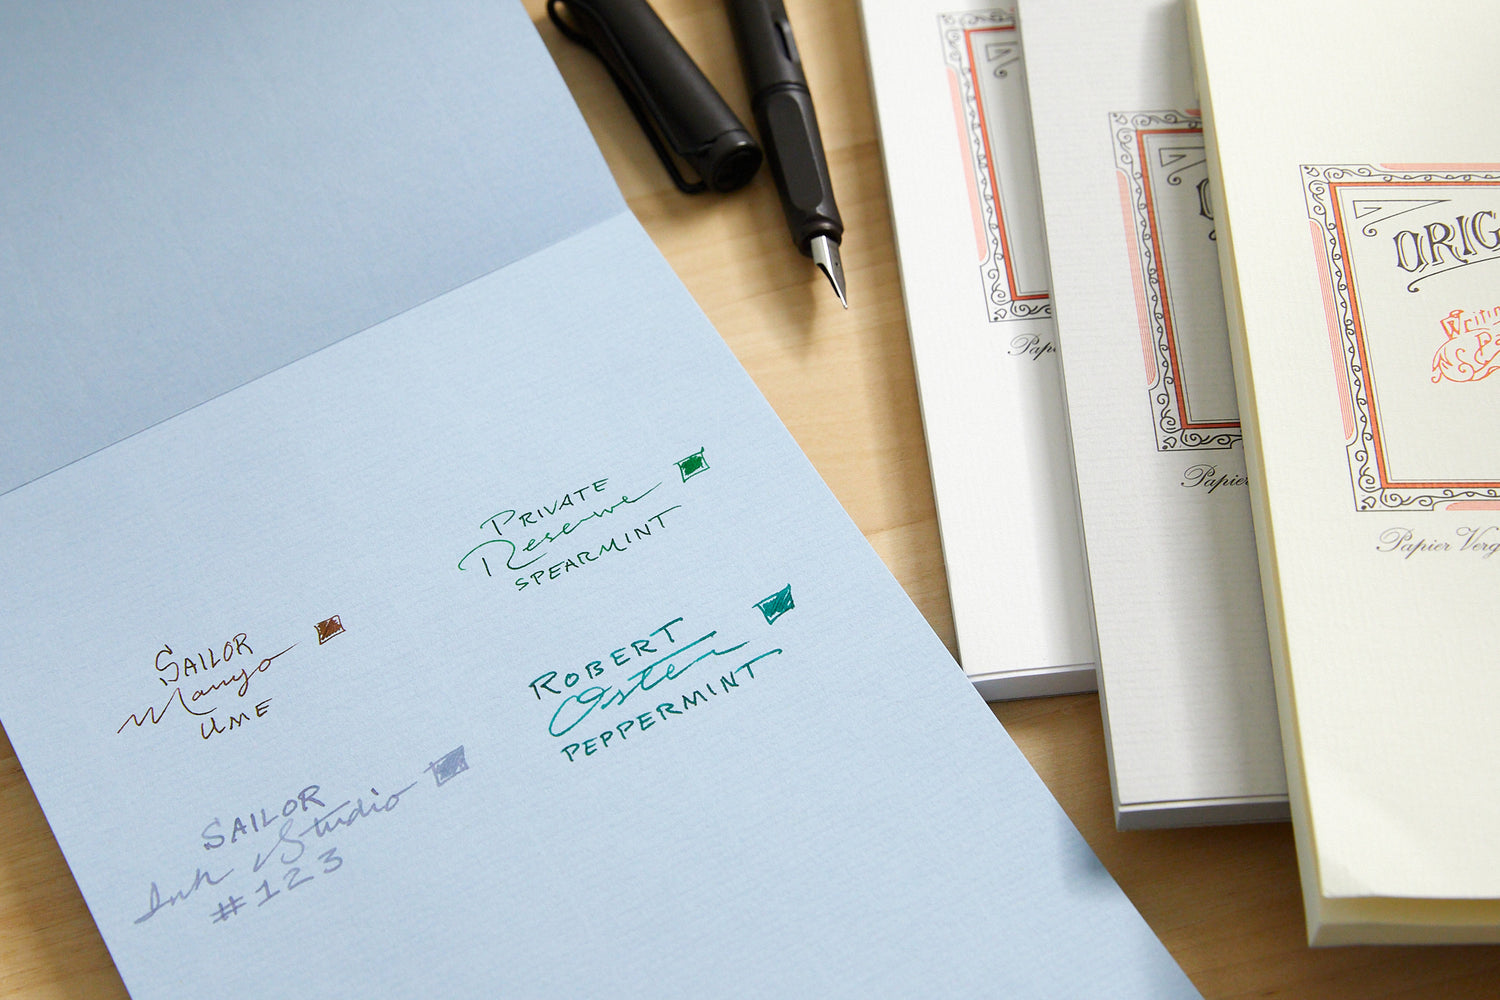 PRIVATE
Reserve
SPEARMINT
SAILOR
Manyo
UME
ROBERT
Oster
PEPPERMINT
SAILOR
Ink Studio
#123
ORIG
Writin
Pa
Papier Verg
Papier
Pap